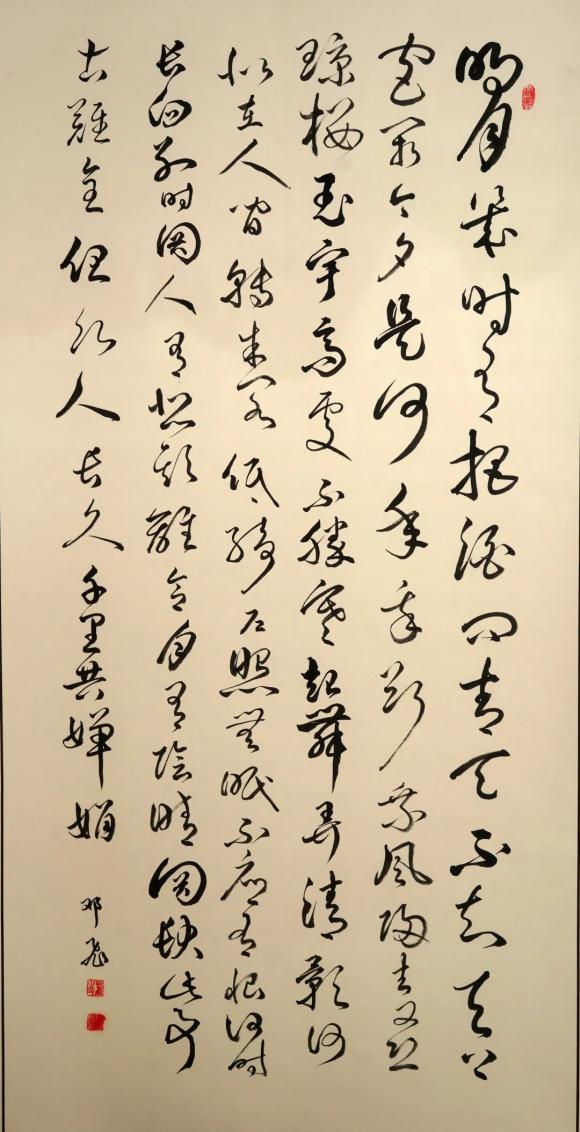 明月幾时有把酒问青天不知天上
宫阙今夕是何年我欲乘风归去又恐
琼楼玉宇高处不胜寒起舞弄清影何
似在人间转朱阁低绮户照無眠不应有恨何时
长向别时圆人有悲欢離合月有陰晴圆缺此事
古難全但愿人长久千里共婵娟
邓